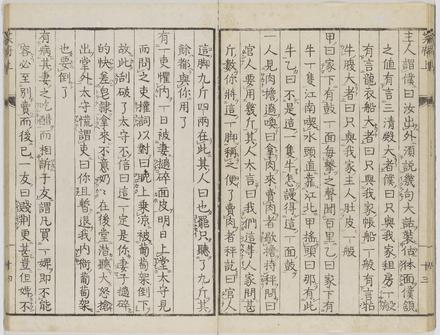 主人謂僕曰汝出外須説幾句大話裝體面僕頷
之値有言三清殿大者僕曰只與我家租房一般
有言龍衣船大者曰只與我家帳船一般有言牯
牛腹大者曰只與我家主人肚皮一般
甲曰家下有鼓一面毎撃之聲聞百里乙曰家下有
牛一隻江南喫水頭直靠江北甲搖頭曰那有此
牛乙曰不是這一隻牛怎謾得這一面鼓
一人見肉擔過喚曰拿肉來賣肉者歇擔持秤問曰
官人要用幾斤其人大言曰我們這等人家問甚
斤數你將這一脚稱之便了賣肉者秤訖曰官人
這脚九斤四兩在此其人曰也罷只聽了九斤其
餘都與你用了
有一吏懼内一日被妻撾碎面皮明日上堂太守見
而問之吏權詞以對曰晩上乘涼被葡萄架倒下
故此刮破了太守不信曰這一定是你妻子撾碎
的快差皂隷拿來不意奶〻在後堂潛聽大怒搶
出堂外太守慌謂吏曰你且暫退我内衙葡萄架
也要倒了
有病其妻之吃醋而相訴于友謂凡買一婢即不能
容必至別賣而後已一友曰賤荊更甚豈但婢不